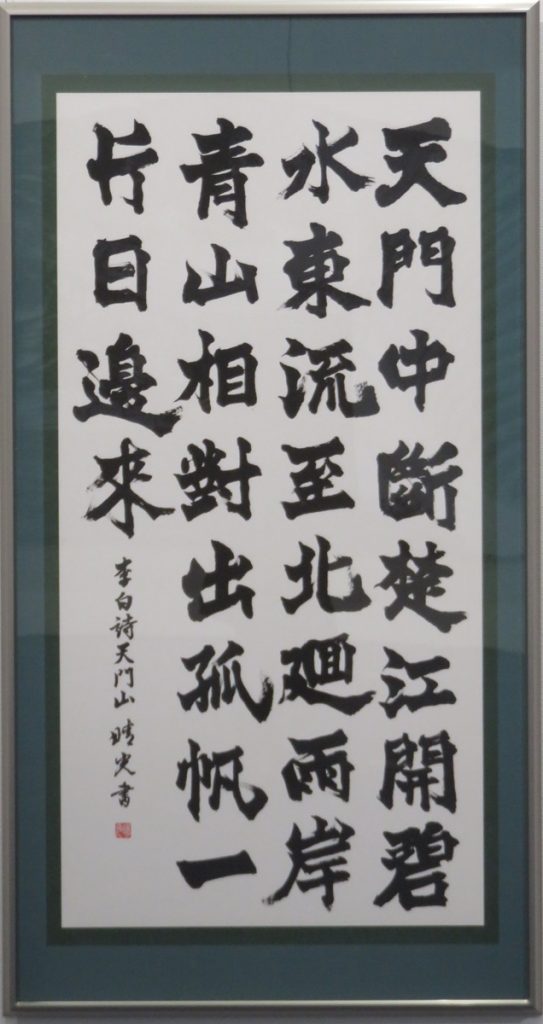 天門中斷楚江開碧
水東流至北廻兩岸
青山相對出孤帆一
片日邊來
李白詩天門山 晴光書